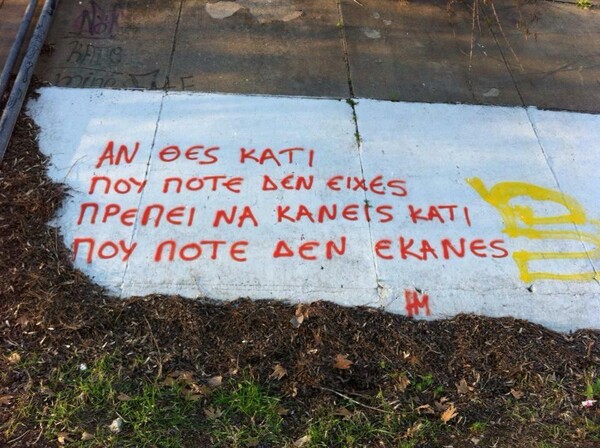 ΑΝ ΘΕΣ ΚΑΤΙ
ΠΟΥ ΠΟΤΕ ΔΕΝ ΕΙΧΕΣ
ΠΡΕΠΕΙ ΝΑ ΚΑΝΕΙΣ ΚΑΤΙ
ΠΟΥ ΠΟΤΕ ΔΕΝ ΕΚΑΝΕΣ